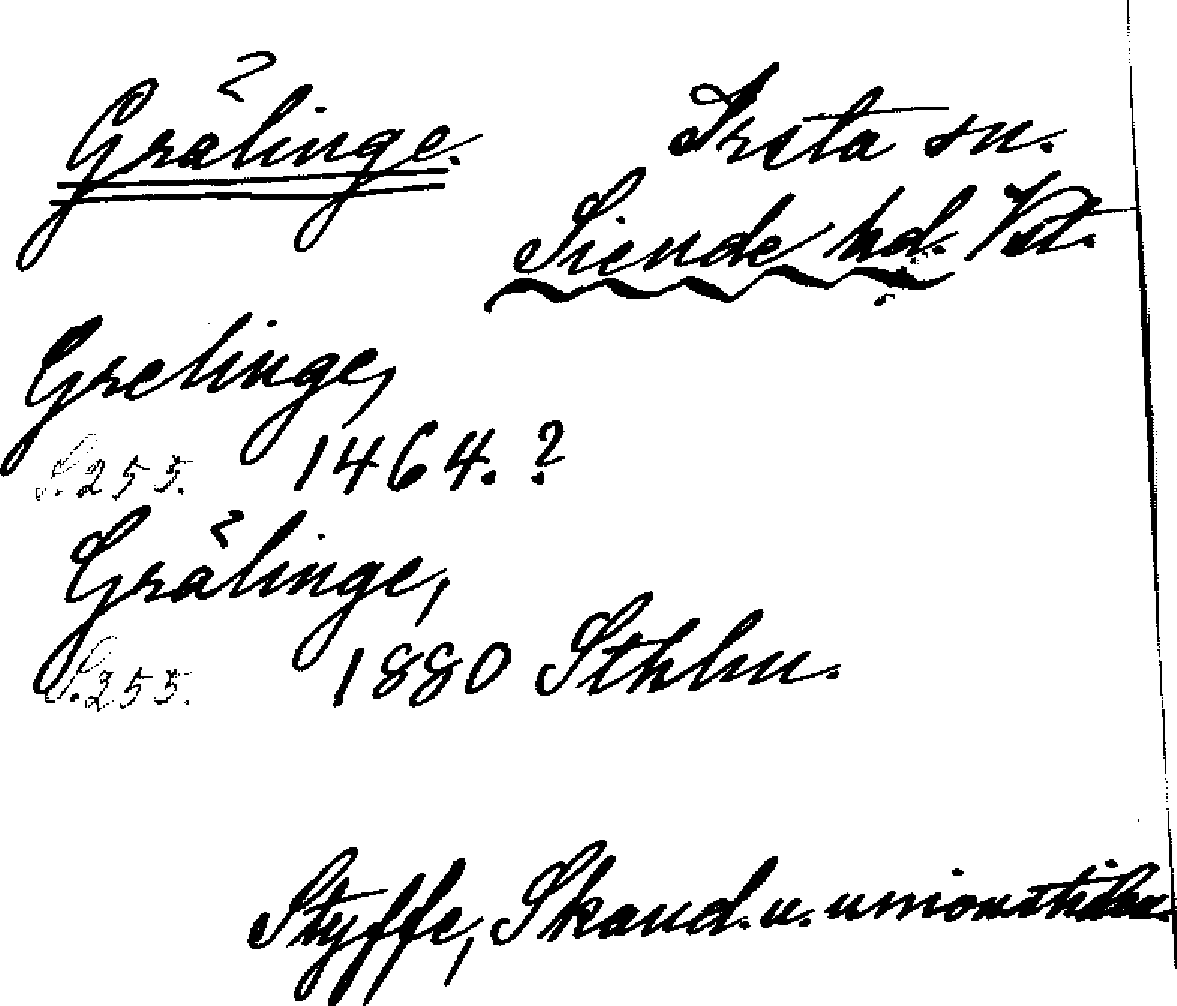 Grålinge. Irsta sn.
Siende hd. Vstm.
Grelinge,
S. 255. 1464. ?
Grålinge,
S. 255. 1880 Sthlm.
Styffe, Skand. u. unionstiden.